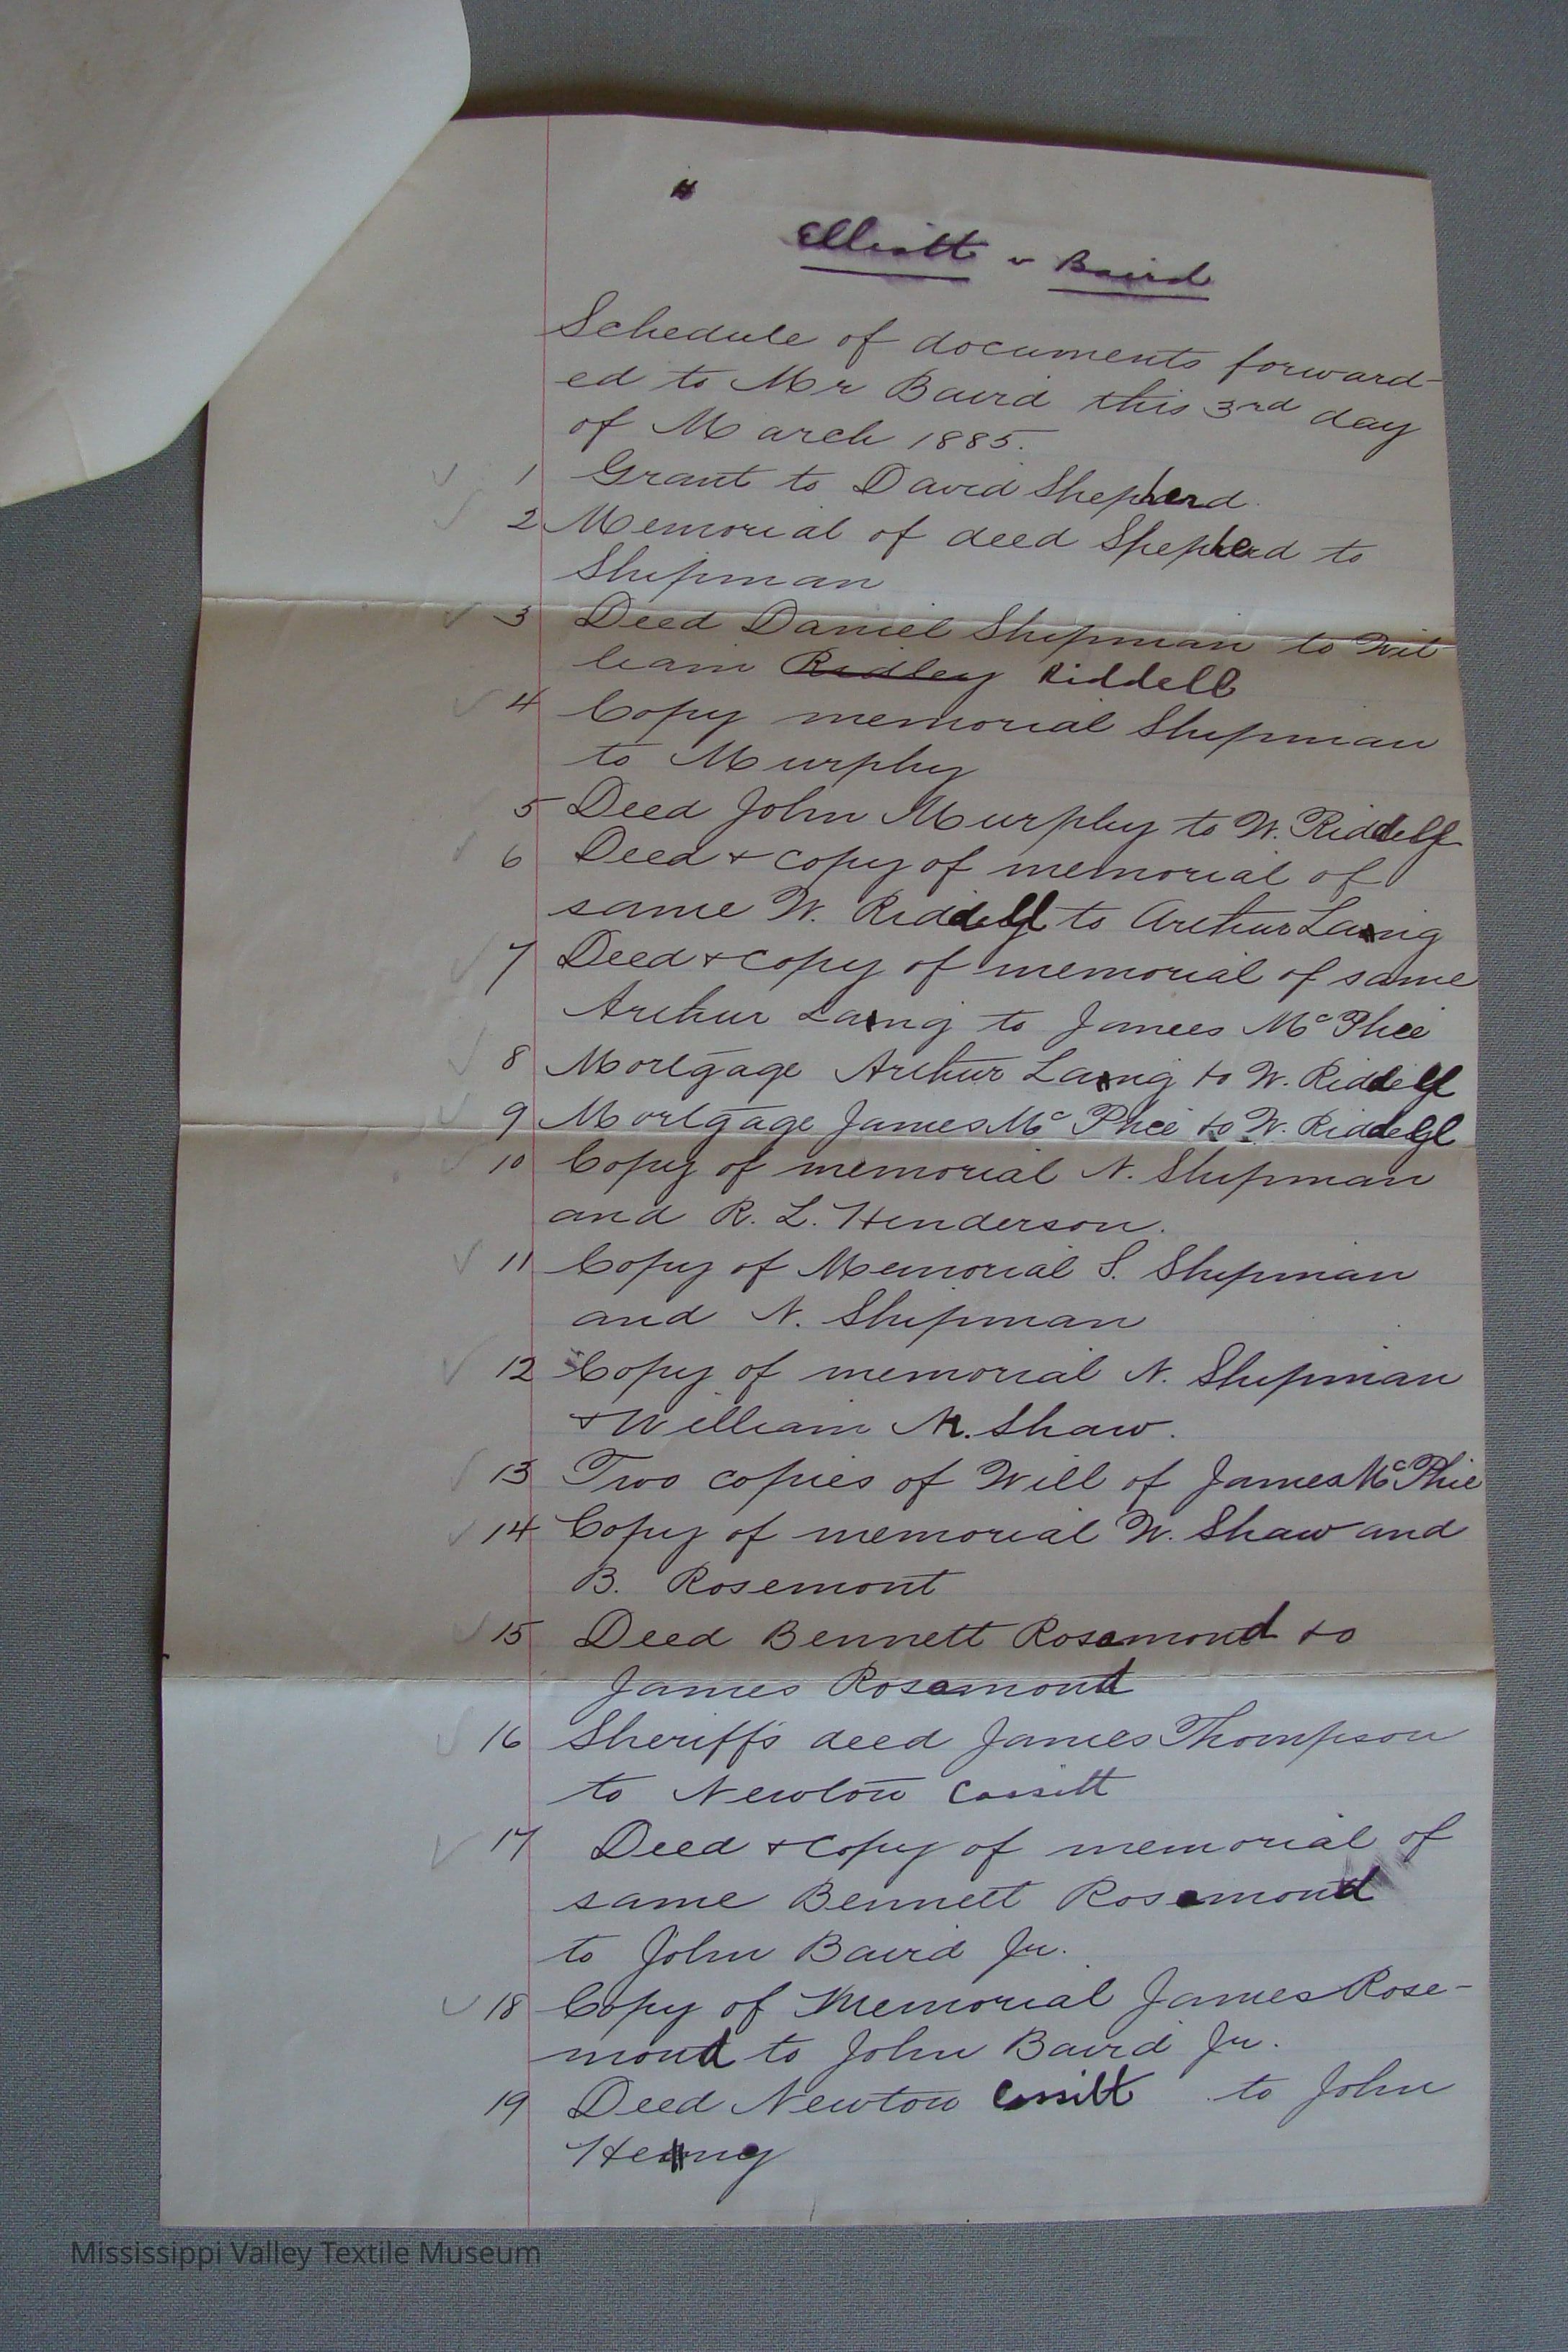 Elliott v Baird
Schedule of documents forward-
ed to Mr Baird this 3rd day
of March 1885.
1 Grant to David Shepherd.
2 Memorial of deed Shepherd to
Shipman
3 Deed Daniel Shipman to Wil
liam Ridley Riddell
4 Copy memorial Shipman
to Murphy
5 Deed John Murphy to W. Riddell
6 Deed & copy of memorial of
same W. Riddell to Arthur Laing
7 Deed & copy of memorial of same
Arthur Laing to James McPhie
8 Mortgage Arthur Laing to W. Riddell
9 Mortgage James McPhie to W. Riddell
10 Copy of memorial N. Shipman
and R. L. Henderson.
11 Copy of Memorial S. Shipman
and N. Shipman
12 Copy of memorial N. Shipman
& William M. Shaw.
13 Two copies of Will of James McPhie
14 Copy of memorial W. Shaw and
B. Rosemont
15 Deed Bennett Rosamond to
James Rosamond
16 Sheriff's deed James Thompson
to Newton Cossitt
17 Deed & copy of memorial of
same Bennett Rosamond
to John Baird Jr.
18 Copy of Memorial James Rose-
mond to John Baird Jr.
19 Deed Newton Cossitt to John
Mississippi Valley Textile Museum